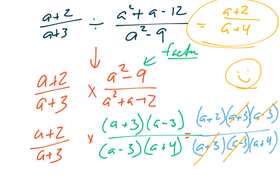 a+2/a+3 ÷ a²+a-12/a²-9 = a+2/a+4
factor
a+2/a+3 × a²-9/a²+a-12
a+2/a+3 × (a+3)(a-3)/(a-3)(a+4) = (a+2)(a+3)(a-3)/(a+3)(a-3)(a+4)